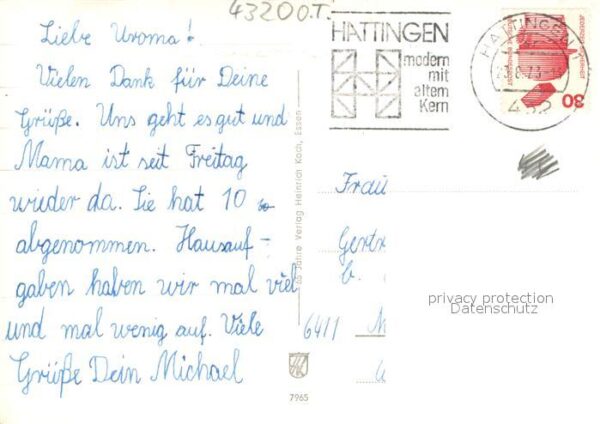 43200.T.
Liebe Uroma!
Vielen Dank für Deine
Grüße. Uns geht es gut und
Mama ist seit Freitag
wieder da. Sie hat 10
abgenommen. Hausauf-
gaben haben wir mal viel
und mal wenig auf. Viele
Grüße Dein Michael
HATTINGEN
modern
mit
altem
Kern
HATTINGEN
432
30
Jahre Verlag Heinrich Koch, Essen
7965
Frau
Gertr
b.
6411
privacy protection
Datenschutz